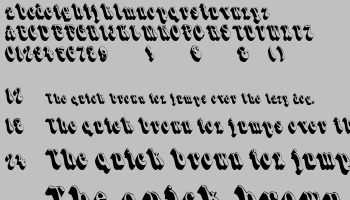 abcdefghijklmnopqrstuvwxyz
ABCDEFGHIJKLMNOPQRSTUVWXYZ
0123456789 ! & & ()
12 The quick brown fox jumps over the lazy dog.
18 The quick brown fox jumps over th
24 The quick brown fox jump
The quick brown